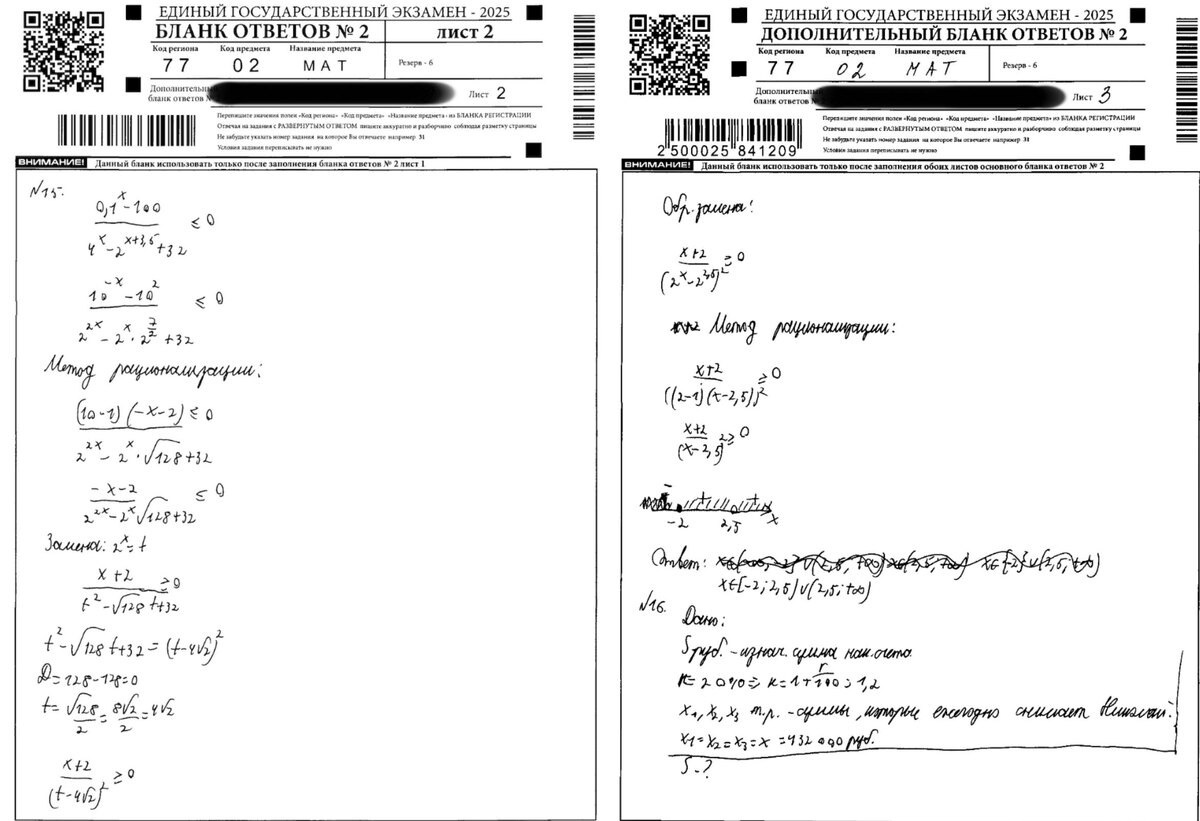 ЕДИНЫЙ ГОСУДАРСТВЕННЫЙ ЭКЗАМЕН - 2025
БЛАНК ОТВЕТОВ № 2
лист 2
Код региона Код предмета Название предмета
77 02 МАТ
Резерв - 6
Дополнительный
бланк ответов №
Лист 2
Перепишите значения полей «Код региона» «Код предмета» «Название предмета» из БЛАНКА РЕГИСТРАЦИИ
Отвечая на задания с РАЗВЕРНУТЫМ ОТВЕТОМ пишите аккуратно и разборчиво соблюдая разметку страницы
Не забудьте указать номер задания на которое Вы отвечаете например 31
Условия задания переписывать не нужно
ВНИМАНИЕ! Данный бланк использовать только после заполнения бланка ответов № 2 лист 1
№15.
(0,1^x - 100)/(4^x - 2^(x+3,5) + 32) ≤ 0
(10^(-x) - 10^2)/(2^(2x) - 2^x · 2^(7/2) + 32) ≤ 0
Метод рационализации:
((10-1)(-x-2))/(2^(2x) - 2^x · √128 + 32) ≤ 0
(-x-2)/(2^(2x) - 2^x √128 + 32) ≤ 0
Замена: 2^x = t
(x+2)/(t^2 - √128 t + 32) ≥ 0
t^2 - √128 t + 32 = (t - 4√2)^2
D = 128 - 128 = 0
t = √128/2 = 8√2/2 = 4√2
(x+2)/(t - 4√2)^2 ≥ 0
ЕДИНЫЙ ГОСУДАРСТВЕННЫЙ ЭКЗАМЕН - 2025
ДОПОЛНИТЕЛЬНЫЙ БЛАНК ОТВЕТОВ № 2
Код региона Код предмета Название предмета
77 02 МАТ
Резерв - 6
Дополнительный
бланк ответов №
Лист 3
2 500025 841209
Перепишите значения полей «Код региона» «Код предмета» «Название предмета» из БЛАНКА РЕГИСТРАЦИИ
Отвечая на задания с РАЗВЕРНУТЫМ ОТВЕТОМ пишите аккуратно и разборчиво соблюдая разметку страницы
Не забудьте указать номер задания на которое Вы отвечаете например 31
Условия задания переписывать не нужно
ВНИМАНИЕ! Данный бланк использовать только после заполнения обоих листов основного бланка ответов № 2
Обр. замена:
(x+2)/(2^x - 2^(2,5))^2 ≥ 0
Метод рационализации:
(x+2)/((2-1)(x-2,5))^2 ≥ 0
(x+2)/(x-2,5)^2 ≥ 0
- + +
-2 2,5 x
Ответ:
x∈[-2; 2,5)∪(2,5; +∞)
№16.
Дано:
S руб. - изнач. сумма нак. счета
r = 20% => k = 1 + r/100 = 1,2
x1, x2, x3 т.р. - суммы, которые ежегодно снимает Николай.
x1 = x2 = x3 = x = 432 000 руб.
S - ?